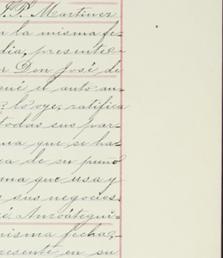 J. P. Martinez
a la misma fe-
dia, presente
r Don José de
el auto an-
oye, ratifica
todas sus par-
ma que se ha-
ea de su puño
ma que usa y
sus negocios.
é Anzoátegui-
misma fecha,-
presente en su